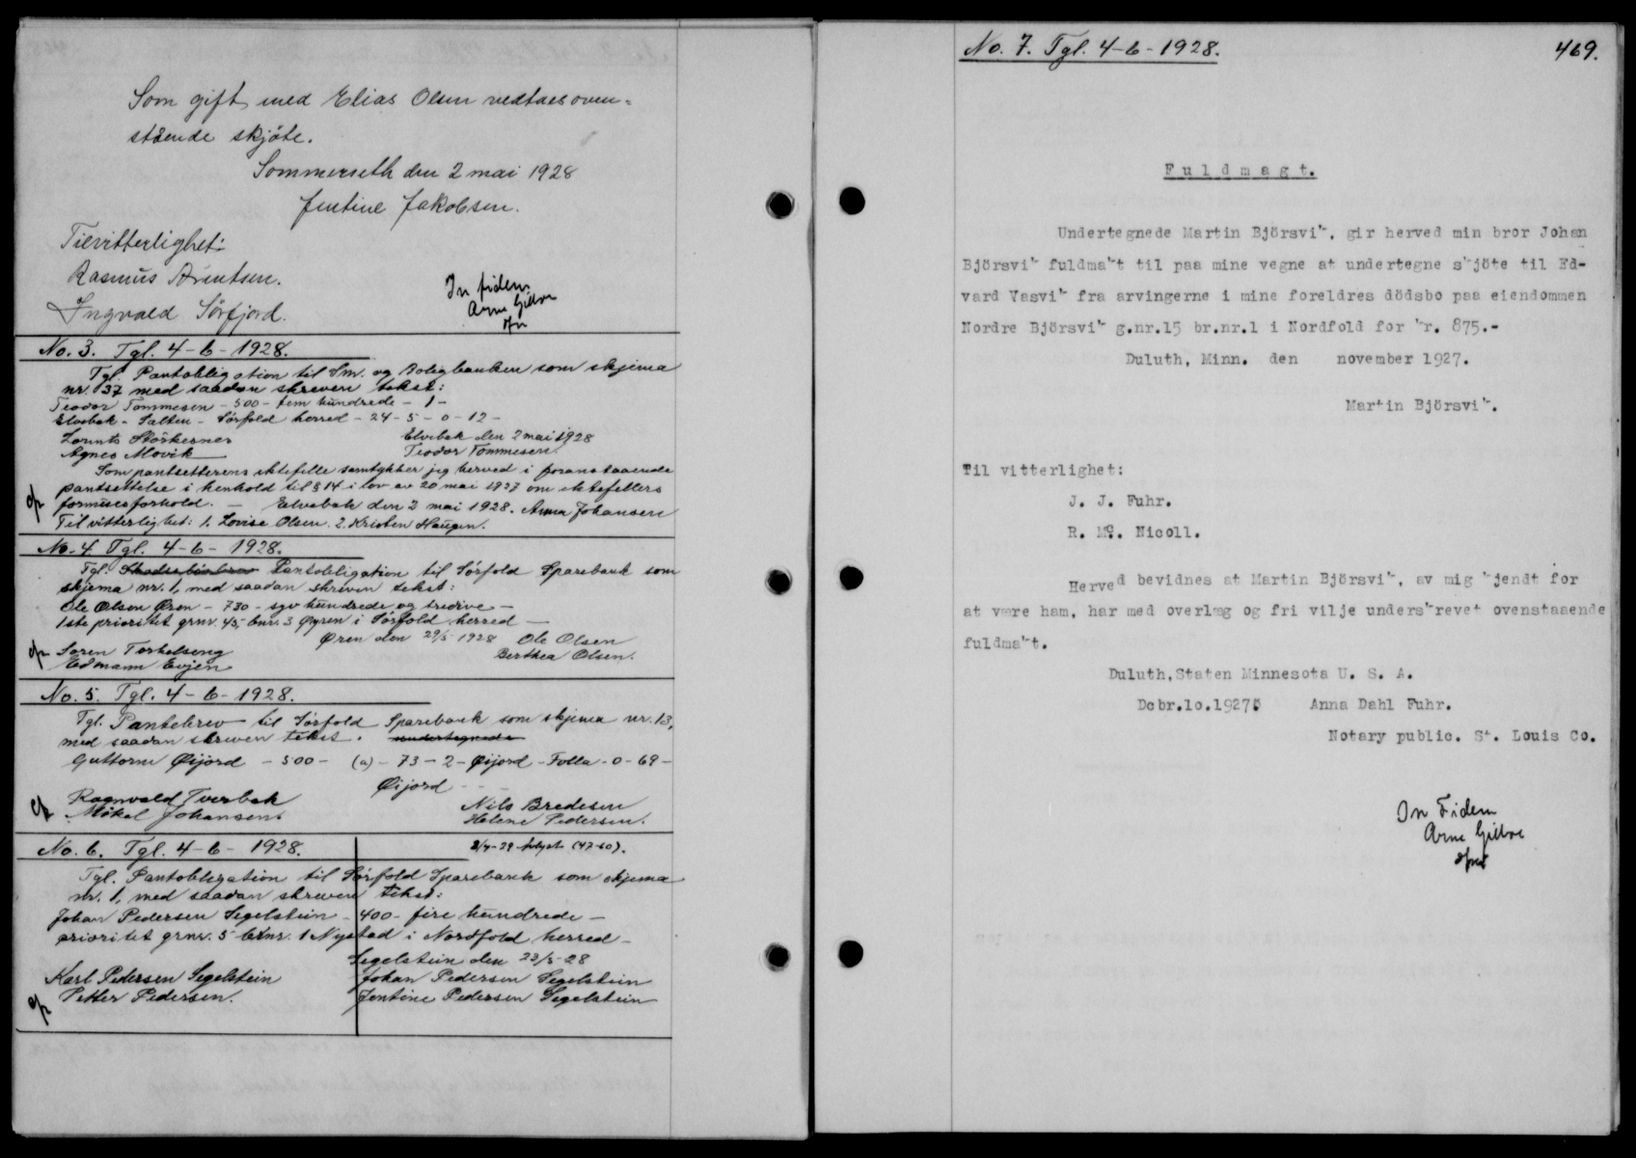 Som gift med Elias Olsen vedtaes oven-
stående skjöte.
Sommerseth den 2 mai 1928
Jentine Jakobsen.
Tilvitterlighet:
Rasmus Arentsen.
Ingvald Sörfjord.
In fidem
Arne Gilve
No. 3. Tgl. 4-6-1928.
Tgl. Pantobligation til Sm. og Boligbanken som skjema
nr. 37 med saadan skreven tekst:
Teodor Tommesen - 500 - fem hundrede - 1 -
Elvebak - Salten - Sørfold herred - 24 - 5 - 0 - 12 -
Elvebak den 2 mai 1928
Agnes Movik
Teodor Tommesen.
Som pantsetterens ektefelle samtykker jeg herved i foranstaaende
pantsettelse i henhold til § 14 i lov av 20 mai 1927 om ektefellers
formuesforhold. - Elvebak den 2 mai 1928. Anna Johansen
Til vitterlighet: 1. Lovise Olsen. 2. Kristen Haugen.
No. 4 Tgl. 4-6-1928.
Tgl. Pantobligation til Sørfold Sparebank som
skjema nr. 1, med saadan skreven tekst:
Ole Olsen Øren - 730 - syv hundrede og tredive -
1ste prioritet grnr. 45, bnr. 3 Øyren i Sørfold herred -
Øren den 29/5 1928 Ole Olsen
Søren Torkelseng
Berthea Olsen.
Edmann Evjen
No. 5. Tgl. 4-6-1928.
Tgl. Pantebrev til Sørfold Sparebank som skjema nr. 13,
med saadan skreven tekst. undertegnede
Guttorm Øijord - 500 - (a) - 73 - 2 - Øijord - Folla - 0 - 69 -
Øijord - -
Ragnvald Tverbak
Nils Bredesen
Mikal Johansen.
Helene Pedersen.
No. 6. Tgl. 4-6-1928.
Tgl. Pantobligation til Sørfold Sparebank som skjema
nr. 1, med saadan skreven tekst:
Johan Pedersen Segelstein - 400 - fire hundrede -
prioritet grnr. 5 brnr. 1 Nystad i Nordfold herred -
Segelstein den 23/5-28
Karl Pedersen Segelstein
Johan Pedersen Segelstein
Petter Pedersen.
Jentine Pedersen Segelstein
No. 7. Tgl. 4-6-1928.
469.
Fuldmagt.
Undertegnede Martin Björsvik, gir herved min bror Johan
Björsvik fuldmakt til paa mine vegne at undertegne skjöte til Ed-
vard Vasvik fra arvingerne i mine foreldres dödsbo paa eiendommen
Nordre Björsvik g.nr.15 br.nr.1 i Nordfold for kr. 875.-
Duluth, Minn. den november 1927.
Martin Björsvik.
Til vitterlighet:
J. J. Fuhr.
R. Mc. Nicoll.
Herved bevidnes at Martin Björsvik, av mig kjendt for
at være ham, har med overlæg og fri vilje underskrevet ovenstaaende
fuldmakt.
Duluth,Staten Minnesota U. S. A.
Dcbr.10.1927. Anna Dahl Fuhr.
Notary public. St. Louis Co.
In Fidem
Arne Gilve